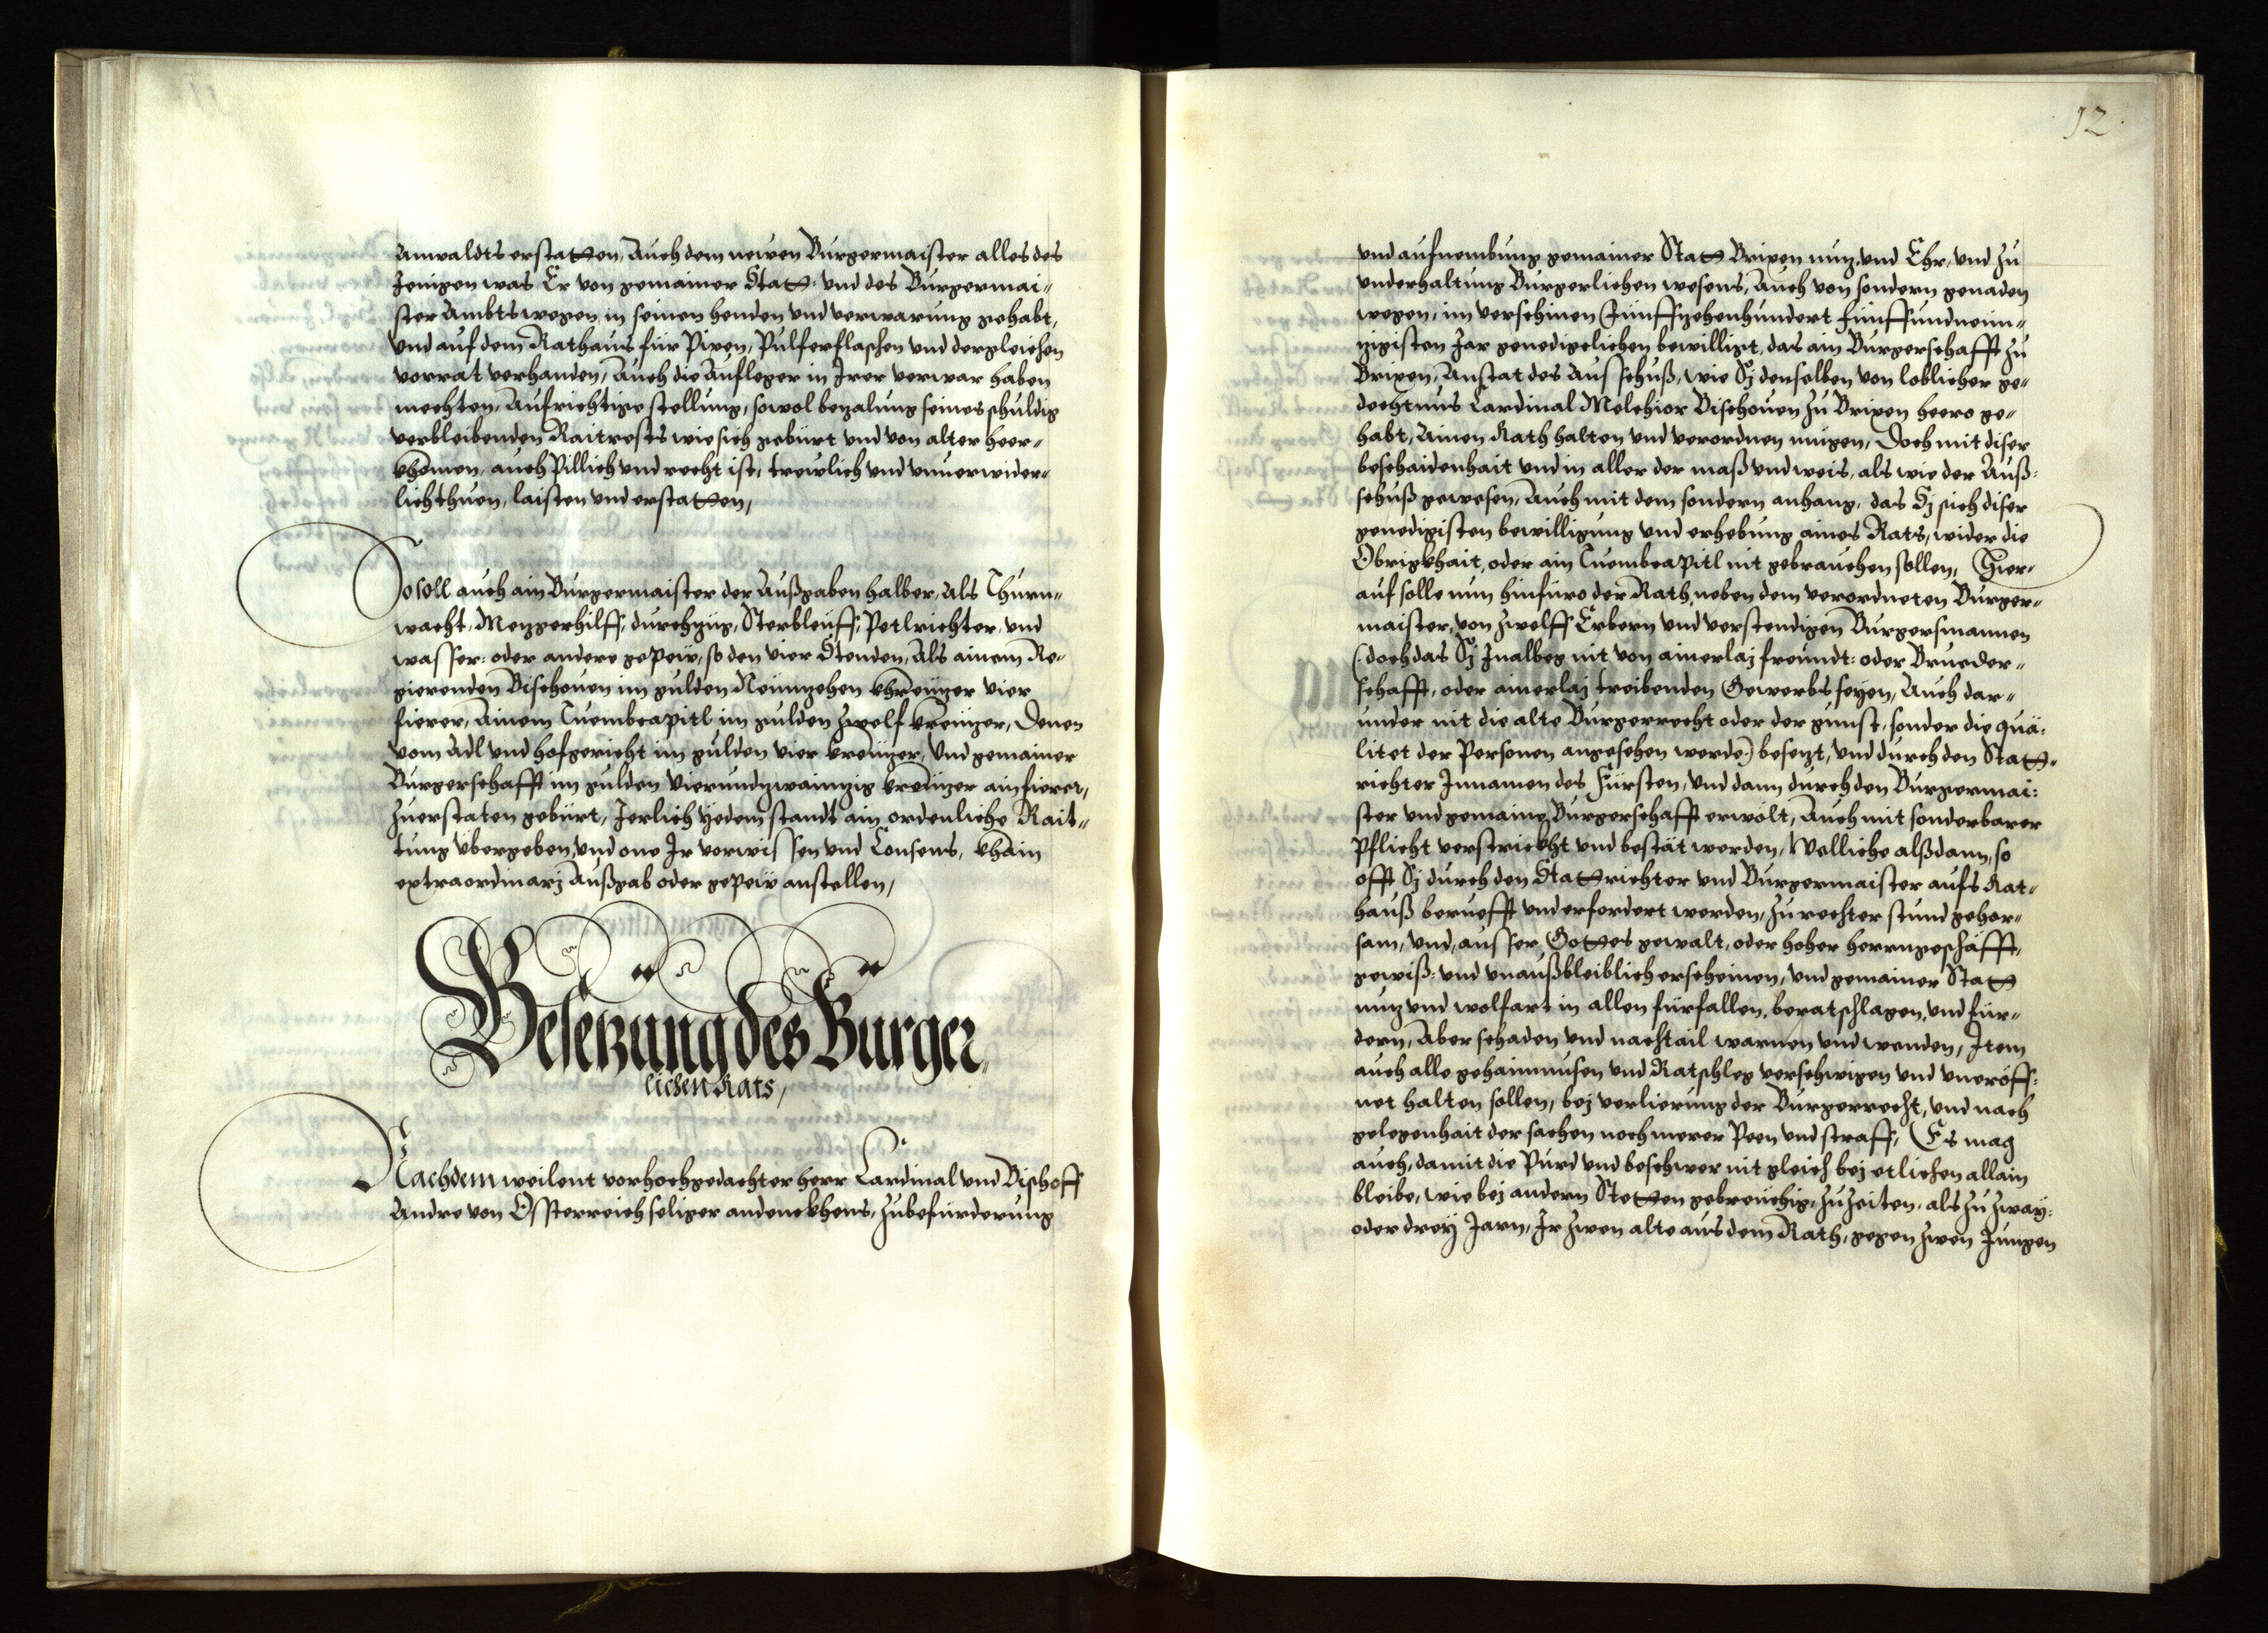 Anwaldts erstatten, Auch dem newen Burgermaister alles des
Jenigen was Er von gemainer Statt: vnd des Burgermai-
ster Ambts wegen in seinen henden vnd verwarung gehabt,
vnd auf dem Rathaus für Pixen, Pulferflaschen vnd dergleichen
vorrat verhanden, Auch die Aufleger in Irer verwar haben
mechten, Aufrichtige stellung, sowol bezalung seines schuldig
verbleibenden Raitrests wie sich gebürt vnd von alter heer-
khomen, auch Pillich vnd recht ist, trewlich vnd vnuerwider-
lich thuen, laisten vnd erstatten,
So soll auch ain Burgermaister der Außgaben halber, Als Thurn-
wacht, Mezgerhilff, durchzüg, Sterbleüff, Petlrichter, vnd
wasser: oder andere gepeüw, so den vier Stenden, Als ainem Re-
gierenden Bischouen im gulden Neünzehen khreüzer vier
fierer, Ainem Tuembcapitl im gulden zwelf kreüzer, Denen
vom Adl vnd hofgericht im gulden vier kreüzer, Vnd gemainer
Burgerschafft im gulden Vierundzwainzig kreüzer ain fierer,
Zuerstaten gebürt, Jerlich yedem standt ain ordenliche Rait-
tung vbergeben, vnd one Ir verwissen vnd Consens, khain
extraordinarj Außgab oder gepeüw anstellen,
Besetzung des Burger-
lichen Rats,
Nachdem weilent vorhochgedachter herr Cardinal vnd Bischoff
Andre von Össterreich seliger andenckhens, Zubefürderung
12
vnd aufnembung gemainer Statt Brixen nuz, vnd Ehr, vnd zu
vnderhaltung Burgerlichen wesens, Auch von sondern genaden
wegen, im verschinen Fünffzehenhundert fünffundneün-
zigisten Jar genedigelichen bewilligt, das ain Burgerschafft zu
Brixen, Anstat des Ausschuß, wie Sj denselben von loblicher ge-
dechtnus Cardinal Melchior Bischouen zu Brixen heero ge-
habt, Ainen Rath halten vnd verordnen mügen, Doch mit diser
beschaidenhait vnd in aller der maß vnd weis, als wie der Auß-
schuß gewesen, Auch mit dem sondern anhang, das Sj sich diser
genedigisten bewilligung vnd erhebung aines Rats, wider die
Obrigkhait, oder ain Tuembcapitl nit gebrauchen sollen, Hier-
auf solle nun hinfüro der Rath, neben dem verordneten Burger-
maister, von zwelff Erbern vnd verstendigen Burgersmannen
(: doch das Sj Inalweg nit von ainerlaj freundt: oder Brueder-
schafft, oder ainerlaj treibenden Gewerbs seyen, Auch dar-
under nit die alte Burgerrecht oder der gunst, sonder die qua-
litet der Personen angesehen werde:) besezt, vnd durch den Statt-
richter Innamen des Fürsten, vnd dann durch den Burgermai-
ster vnd gemaine Burgerschafft erwölt, Auch mit sonderbarer
Pflicht verstrickht vnd bestät werden, Welliche alßdann, so
offt Sj durch den Stattrichter vnd Burgermaister aufs Rat-
hauß berueft vnd erfordert werden, zu rechter stund gehor-
sam, vnd, ausser Gottes gewalt, oder hoher herrngeschäfft,
gewiß: vnd vnaußbleiblich erscheinen, vnd gemainer Statt
nuz vnd wolfart in allen fürfallen, beratschlagen, vnd für-
dern, Aber schaden vnd nachtail warnen vnd wenden, Item
auch alle gehaimnusen vnd Ratschleg verschwigen vnd vneröff-
net halten sollen, bej verlierung der Burgerrecht, vnd nach
gelegenhait der sachen noch merer Peen vnd straff, Es mag
auch, damit die Pürd vnd beschwer nit gleich bej etlichen allain
bleibe, wie bej andern Stetten gebreüchig, zu zeiten, als zu zway:
oder drey Jarn, Ir zwen alte aus dem Rath, gegen zwen Jungen